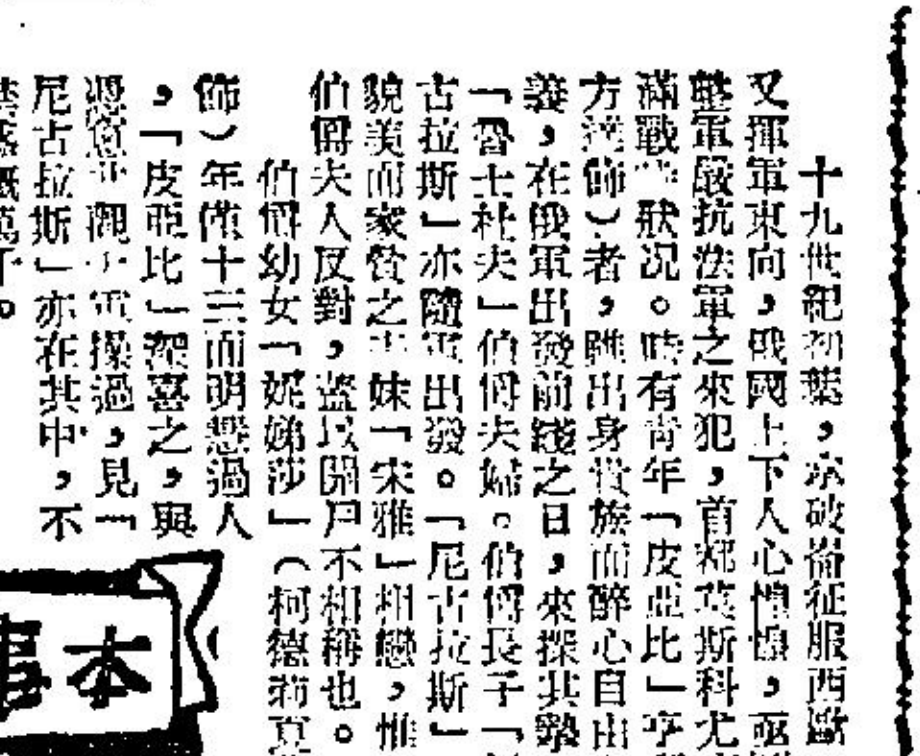 十九世紀初葉，拿破崙征服西歐
又揮軍東向，俄國上下人心惶惶，亟
整軍嚴抗法軍之來犯，首都莫斯科尤
滿戰 狀況。時有青年「皮亞比」亨
方達飾）者，雖出身貴族而醉心自由
義，在俄軍出發前綫之日，來探其摯
「魯士杜夫」伯爵夫婦。伯爵長子「
古拉斯」亦隨軍出發。「尼古拉斯」
貌美而家貧之表妹「宋雅」相戀，惟
伯爵夫人反對，蓋以門戶不相稱也。
伯爵幼女「妮娣莎」（柯德莉夏
飾）年僅十三而明慧過人
，「皮亞比」深喜之，與
憑窗 觀 軍操過，見「
尼古拉斯」亦在其中，不
禁感慨萬千。
本事